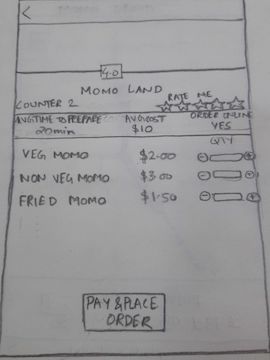 <
4.0
MOMO LAND
COUNTER 2 RATE ME
AVG TIME TO PREPARE AVG COST ORDER ONLINE
20 min $10 YES
QTY
VEG MOMO $2.00 - +
NON VEG MOMO $3.00 - +
FRIED MOMO $1.50 - +
PAY & PLACE
ORDER